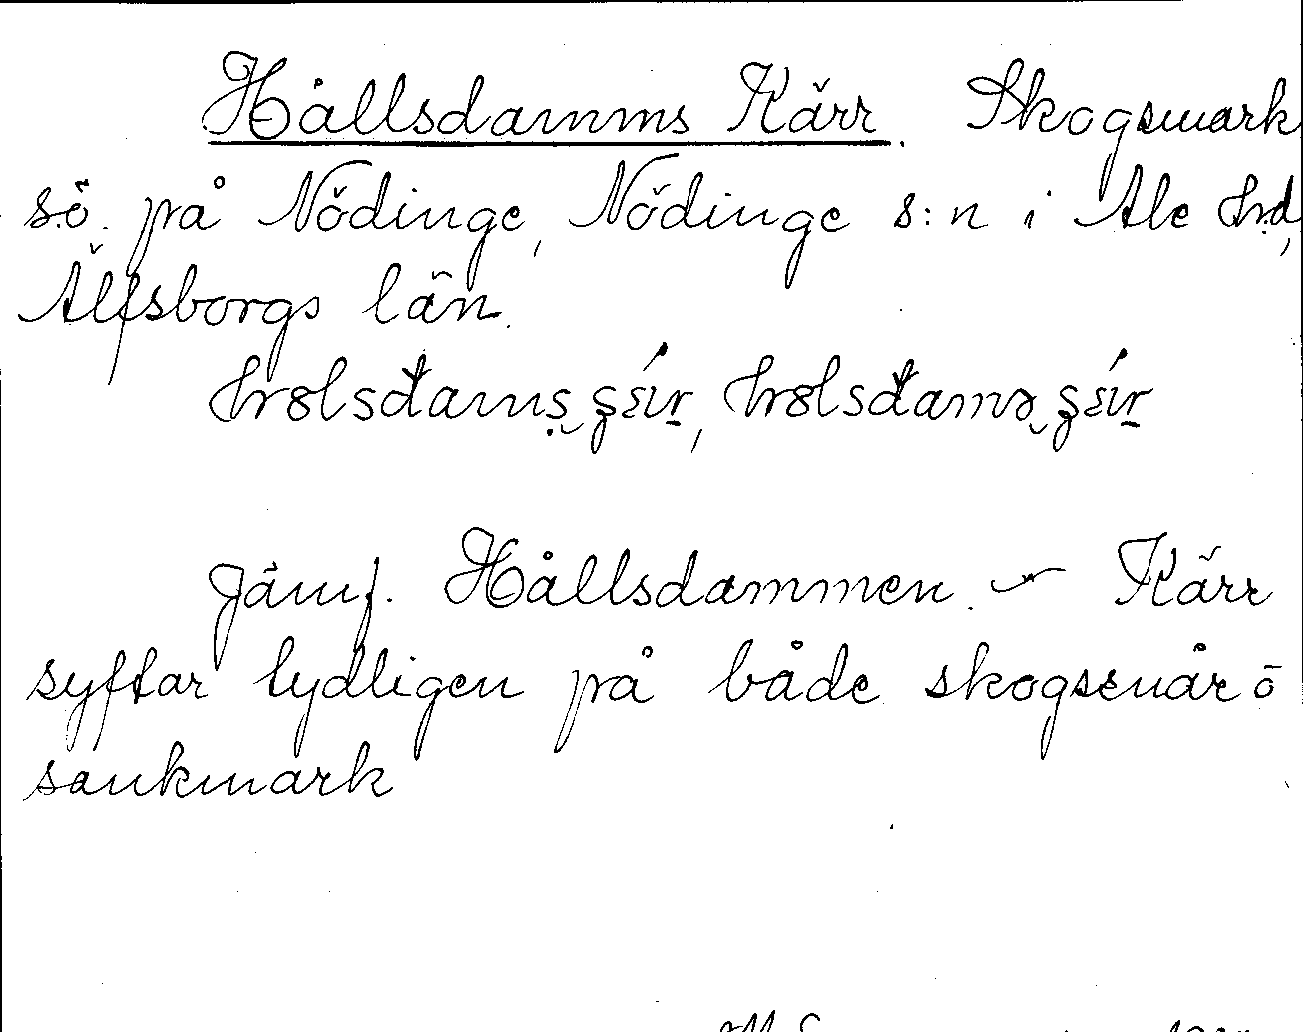 Hållsdamms Kärr. Skogsmark
s.ö. på Nödinge, Nödinge s:n i Ale h.d,
Älfsborgs län.
Jämf. Hållsdammen. — Kärr
syftar tydligen på både skogssnår o
sankmark